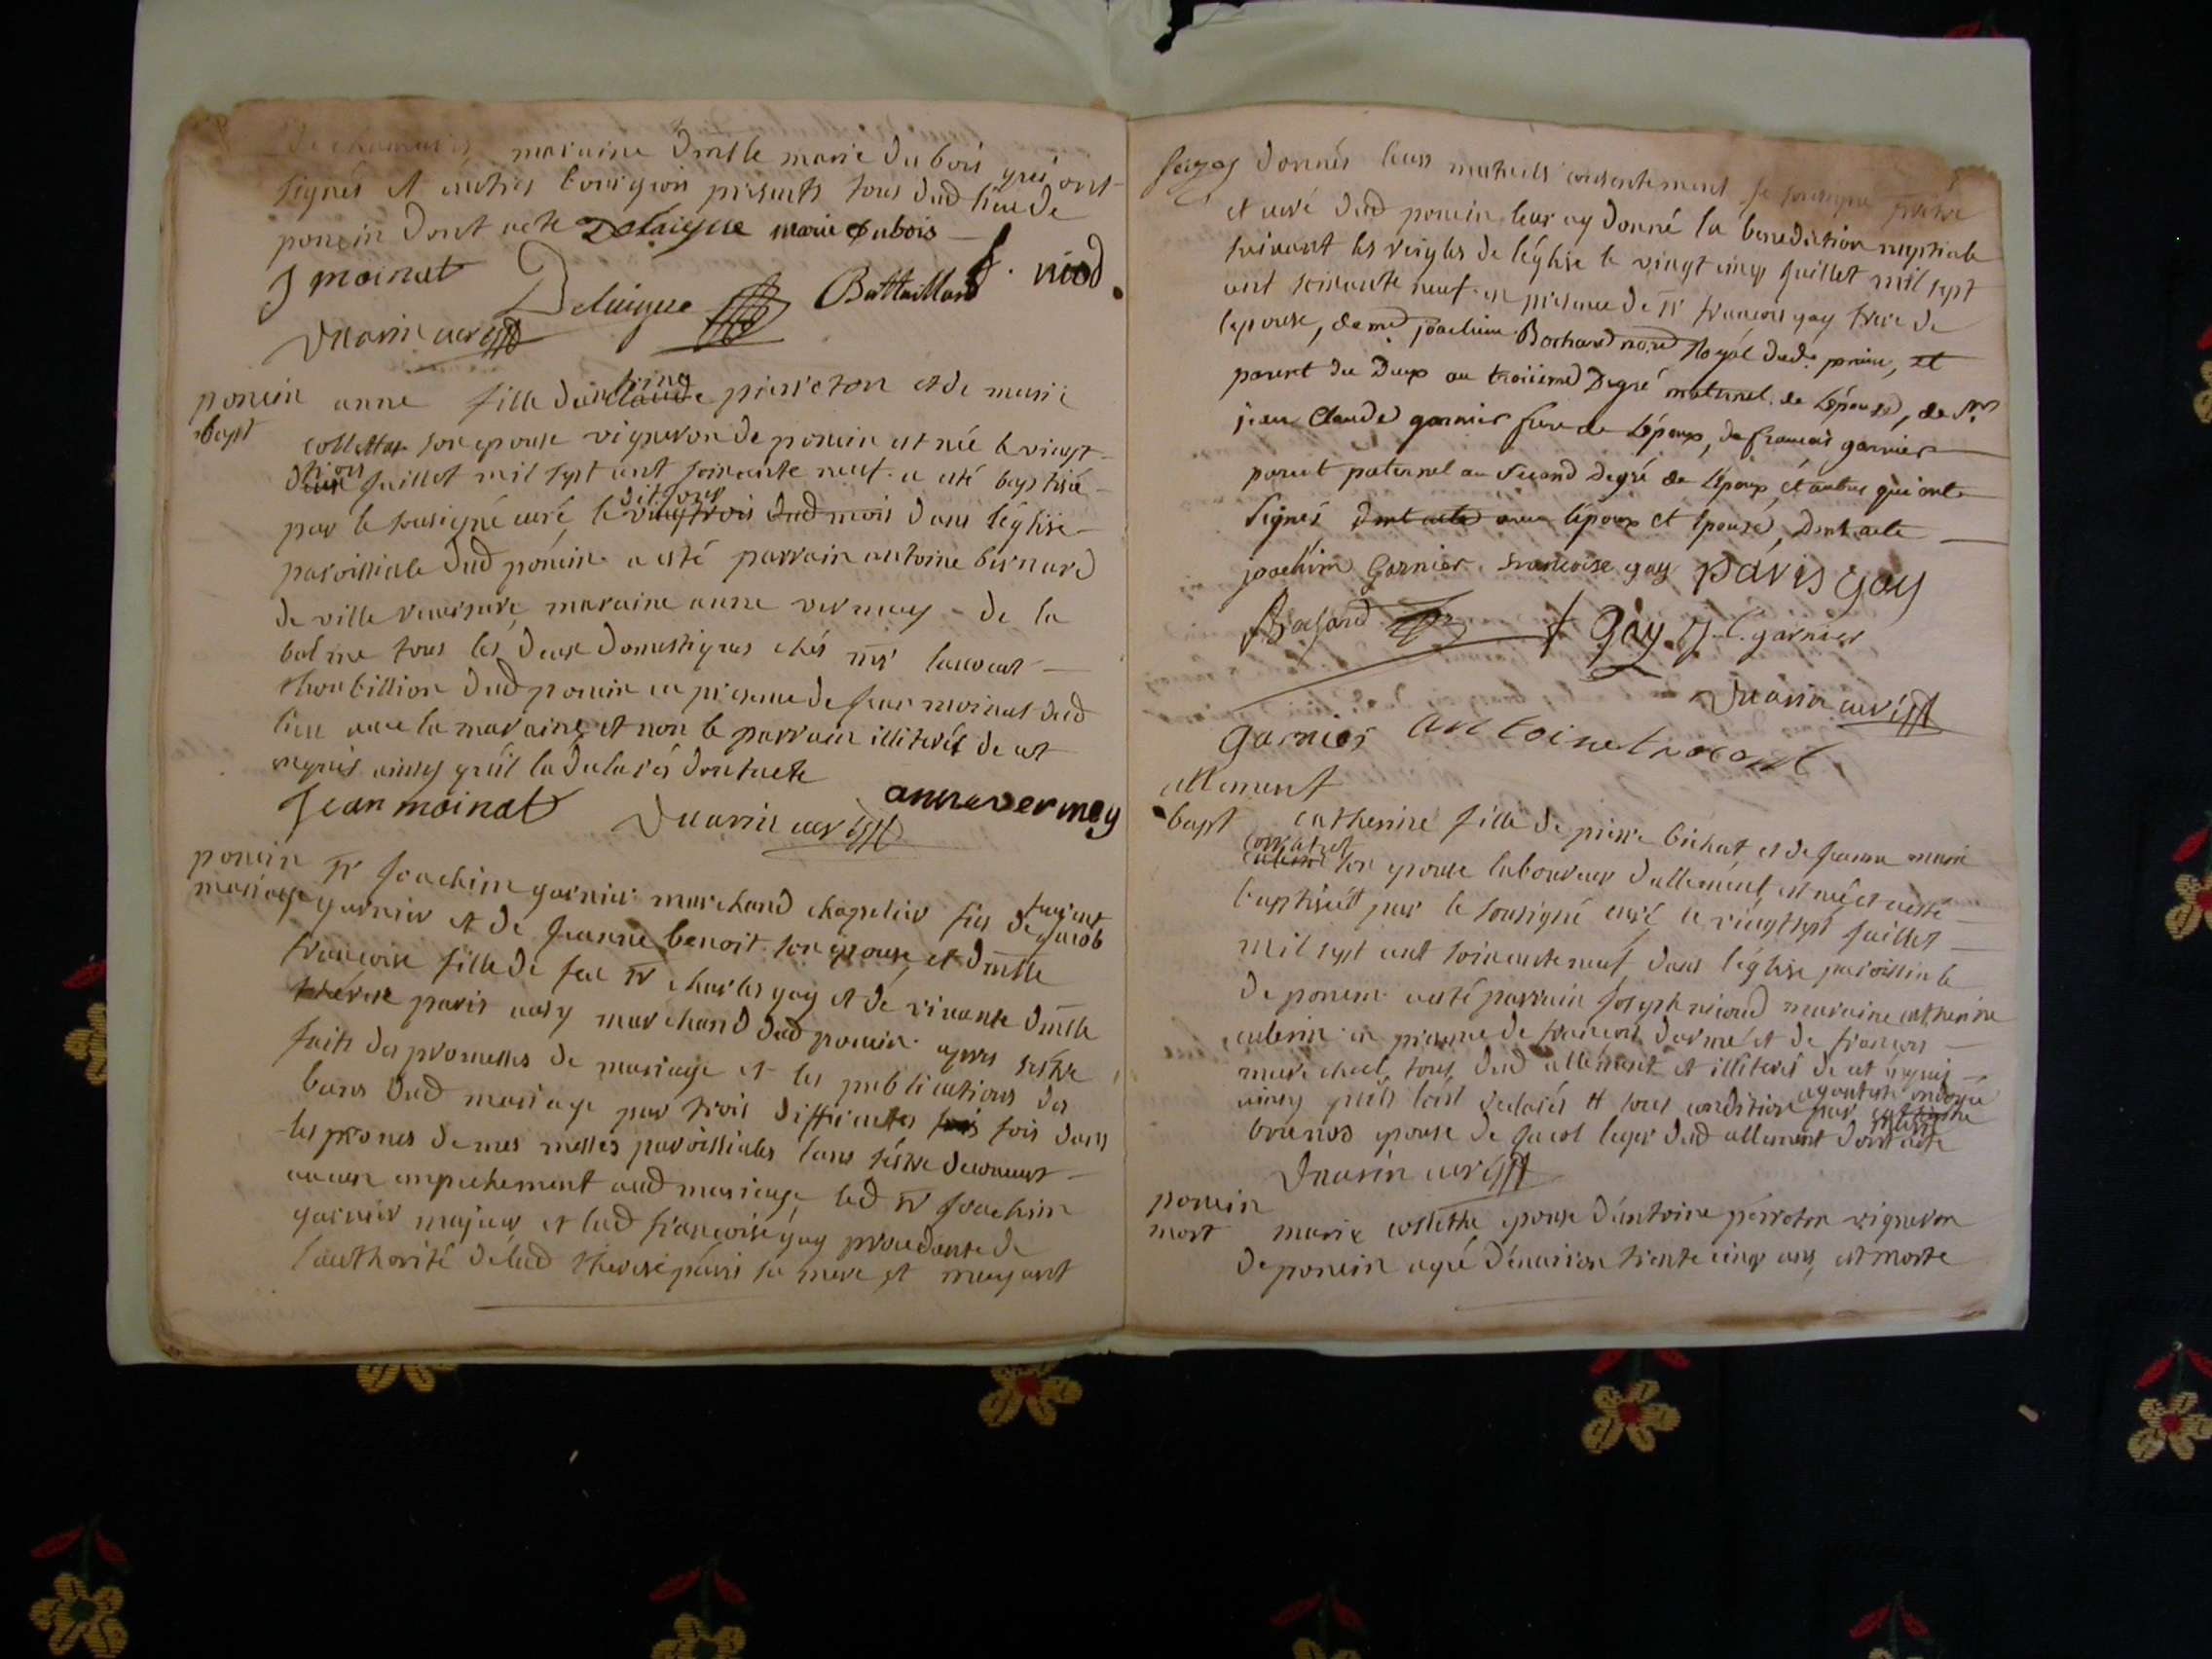 maraine Dmlle marie du bois qui ont
signés et autres bourgeois présents tous dud lieu de
poncin Dont acte Delaigue marie Dubois
J moinat Delaigue Battaillard niod
curé
poncin
bapt
anne fille d'antoine pierreton et de marie
collettaz son epouse vigneron de poncin est née le vingt
trois juillet mil sept cent soixante neuf a esté baptisée
par le sousigné curé le dit jour dans l'église
paroissiale dud poncin a esté parrain antoine bernard
de ville reversure maraine anne vermey de la
balme tous les deux domestiques chés mr
dud poncin en présence de jean moinat dud
lieu avec la maraine et non le parrain illiterés de ce
requis ainsy qu'il l'a déclarés dont acte
Jean moinat curé anne vermey
poncin
mariage
sr joachim garnier marchand chapelier fils de jacob
garnier et de jeanne benoit son epouse et dmlle
françoise fille de feu sr charles gay et de vivante dmlle
thérèse paris marchand dud poncin apres s'estre
faits des promesses de mariage et les publications des
bans dud mariage par trois differentes fois dans
les prones de mes messes paroissiales sans s'estre decouvert
aucun empechement aud mariage led sr joachim
garnier majeur et lad françoise gay procedante de
l'authorité de lad therese paris sa mere et m'ayant
donnés leurs mutuels consentement je sousigné prêtre
et curé dud poncin leur ay donné la benediction nuptiale
suivant les reigles de l'église le vingt cinq juillet mil sept
cent soixante neuf en présence de sr françois gay frere de
l'epouse, de me joachim Bochard no.re Royal dud. poncin, et
parent du Deux au troisieme Degré maternel de L'épouse, de Sr
jean Claude garnier frere de L'époux, de françois garnier
parent paternel au second Degré de L'époux et autres qui ont
signés avec l'époux et épouse, Dont acte
joachim Garnier francoise gay paris gay
Bochard Gay J. C. garnier
curé
garnier antoine
allement
bapt
catherine fille de pierre bichat et de jeanne marie
son epouse laboureur d'allement est née et a esté
baptisée par le sousigné curé le vingt sept juillet
mil sept cent soixante neuf dans l'église paroissiale
de poncin a esté parrain joseph maraine catherine
en présence de françois et de françois
marechal tous dud allement et illiterés de ce requis
ainsy qu'ils l'ont déclarés et sous condition
epouse de jacob leger dud allement dont acte
curé
poncin
mort
marie collettaz epouse d'antoine perreton vigneron
de poncin agé d'environ trente cinq ans, est morte